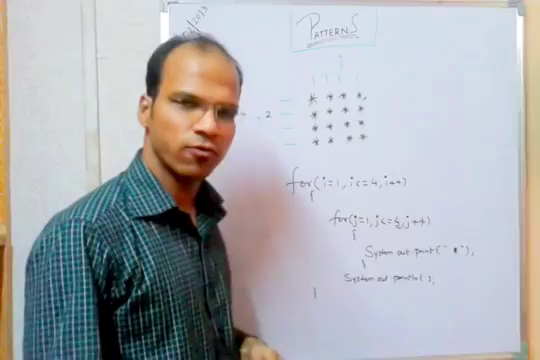 PATTERNS
2
* * * *
* * * *
* * * *
* * * *
for(i=1, i<=4, i++)
{
for(j=1, j<=4, j++)
{
System out print(" * "),
}
System out println( ),
}